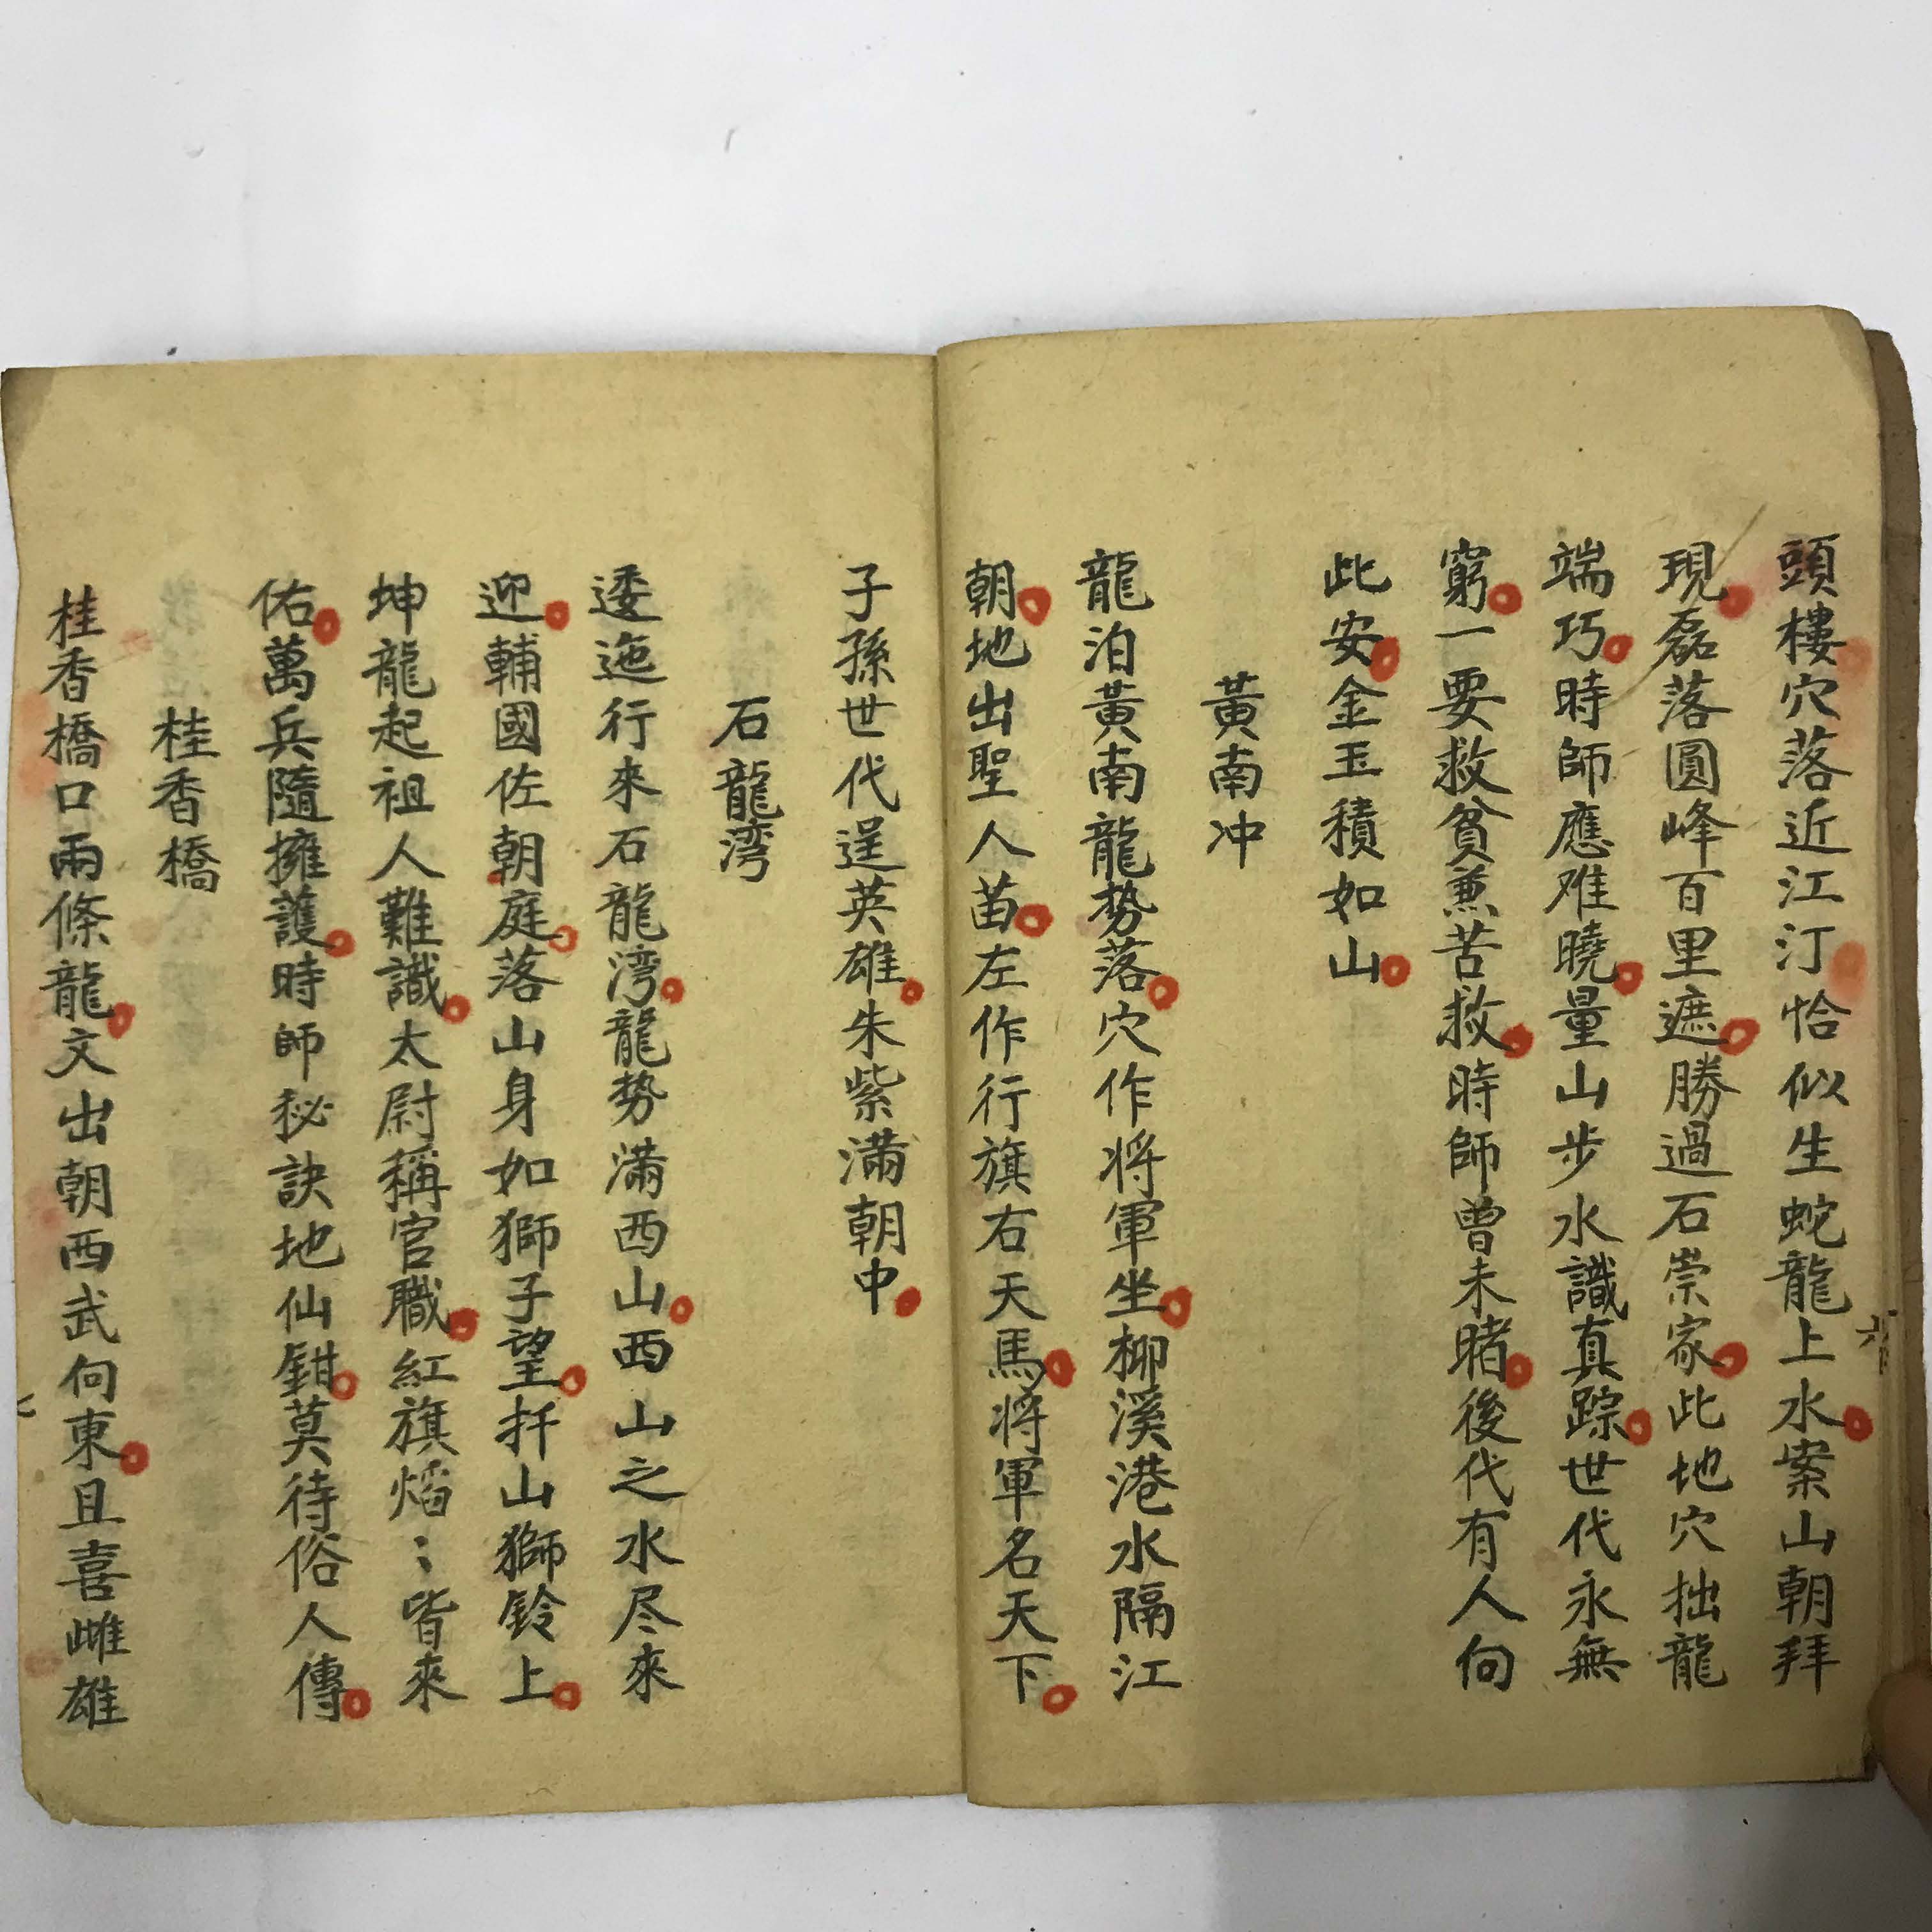 頭樓穴落近江汀恰似生蛇龍上水案山朝拜
現磊落圓峰百里遮勝過石崇家此地穴拙龍
端巧時師應难曉量山步水識真踪世代永無
窮一要救貧兼苦救時師曾未睹後代有人向
此安金玉積如山
黃南冲
龍泊黃南龍势落穴作将軍坐柳溪港水隔江
朝地出聖人苗左作行旗右天馬将軍名天下
子孫世代逞英雄朱紫滿朝中
石龍湾
逶迤行來石龍湾龍势滿西山西山之水尽來
迎輔國佐朝庭落山身如獅子望扦山獅鈴上
坤龍起祖人難識太尉稱官職紅旗熖〻皆來
佑萬兵隨擁護時師秘訣地仙鉗莫待俗人傳
桂香橋
桂香橋口兩條龍文出朝西武向東且喜雌雄